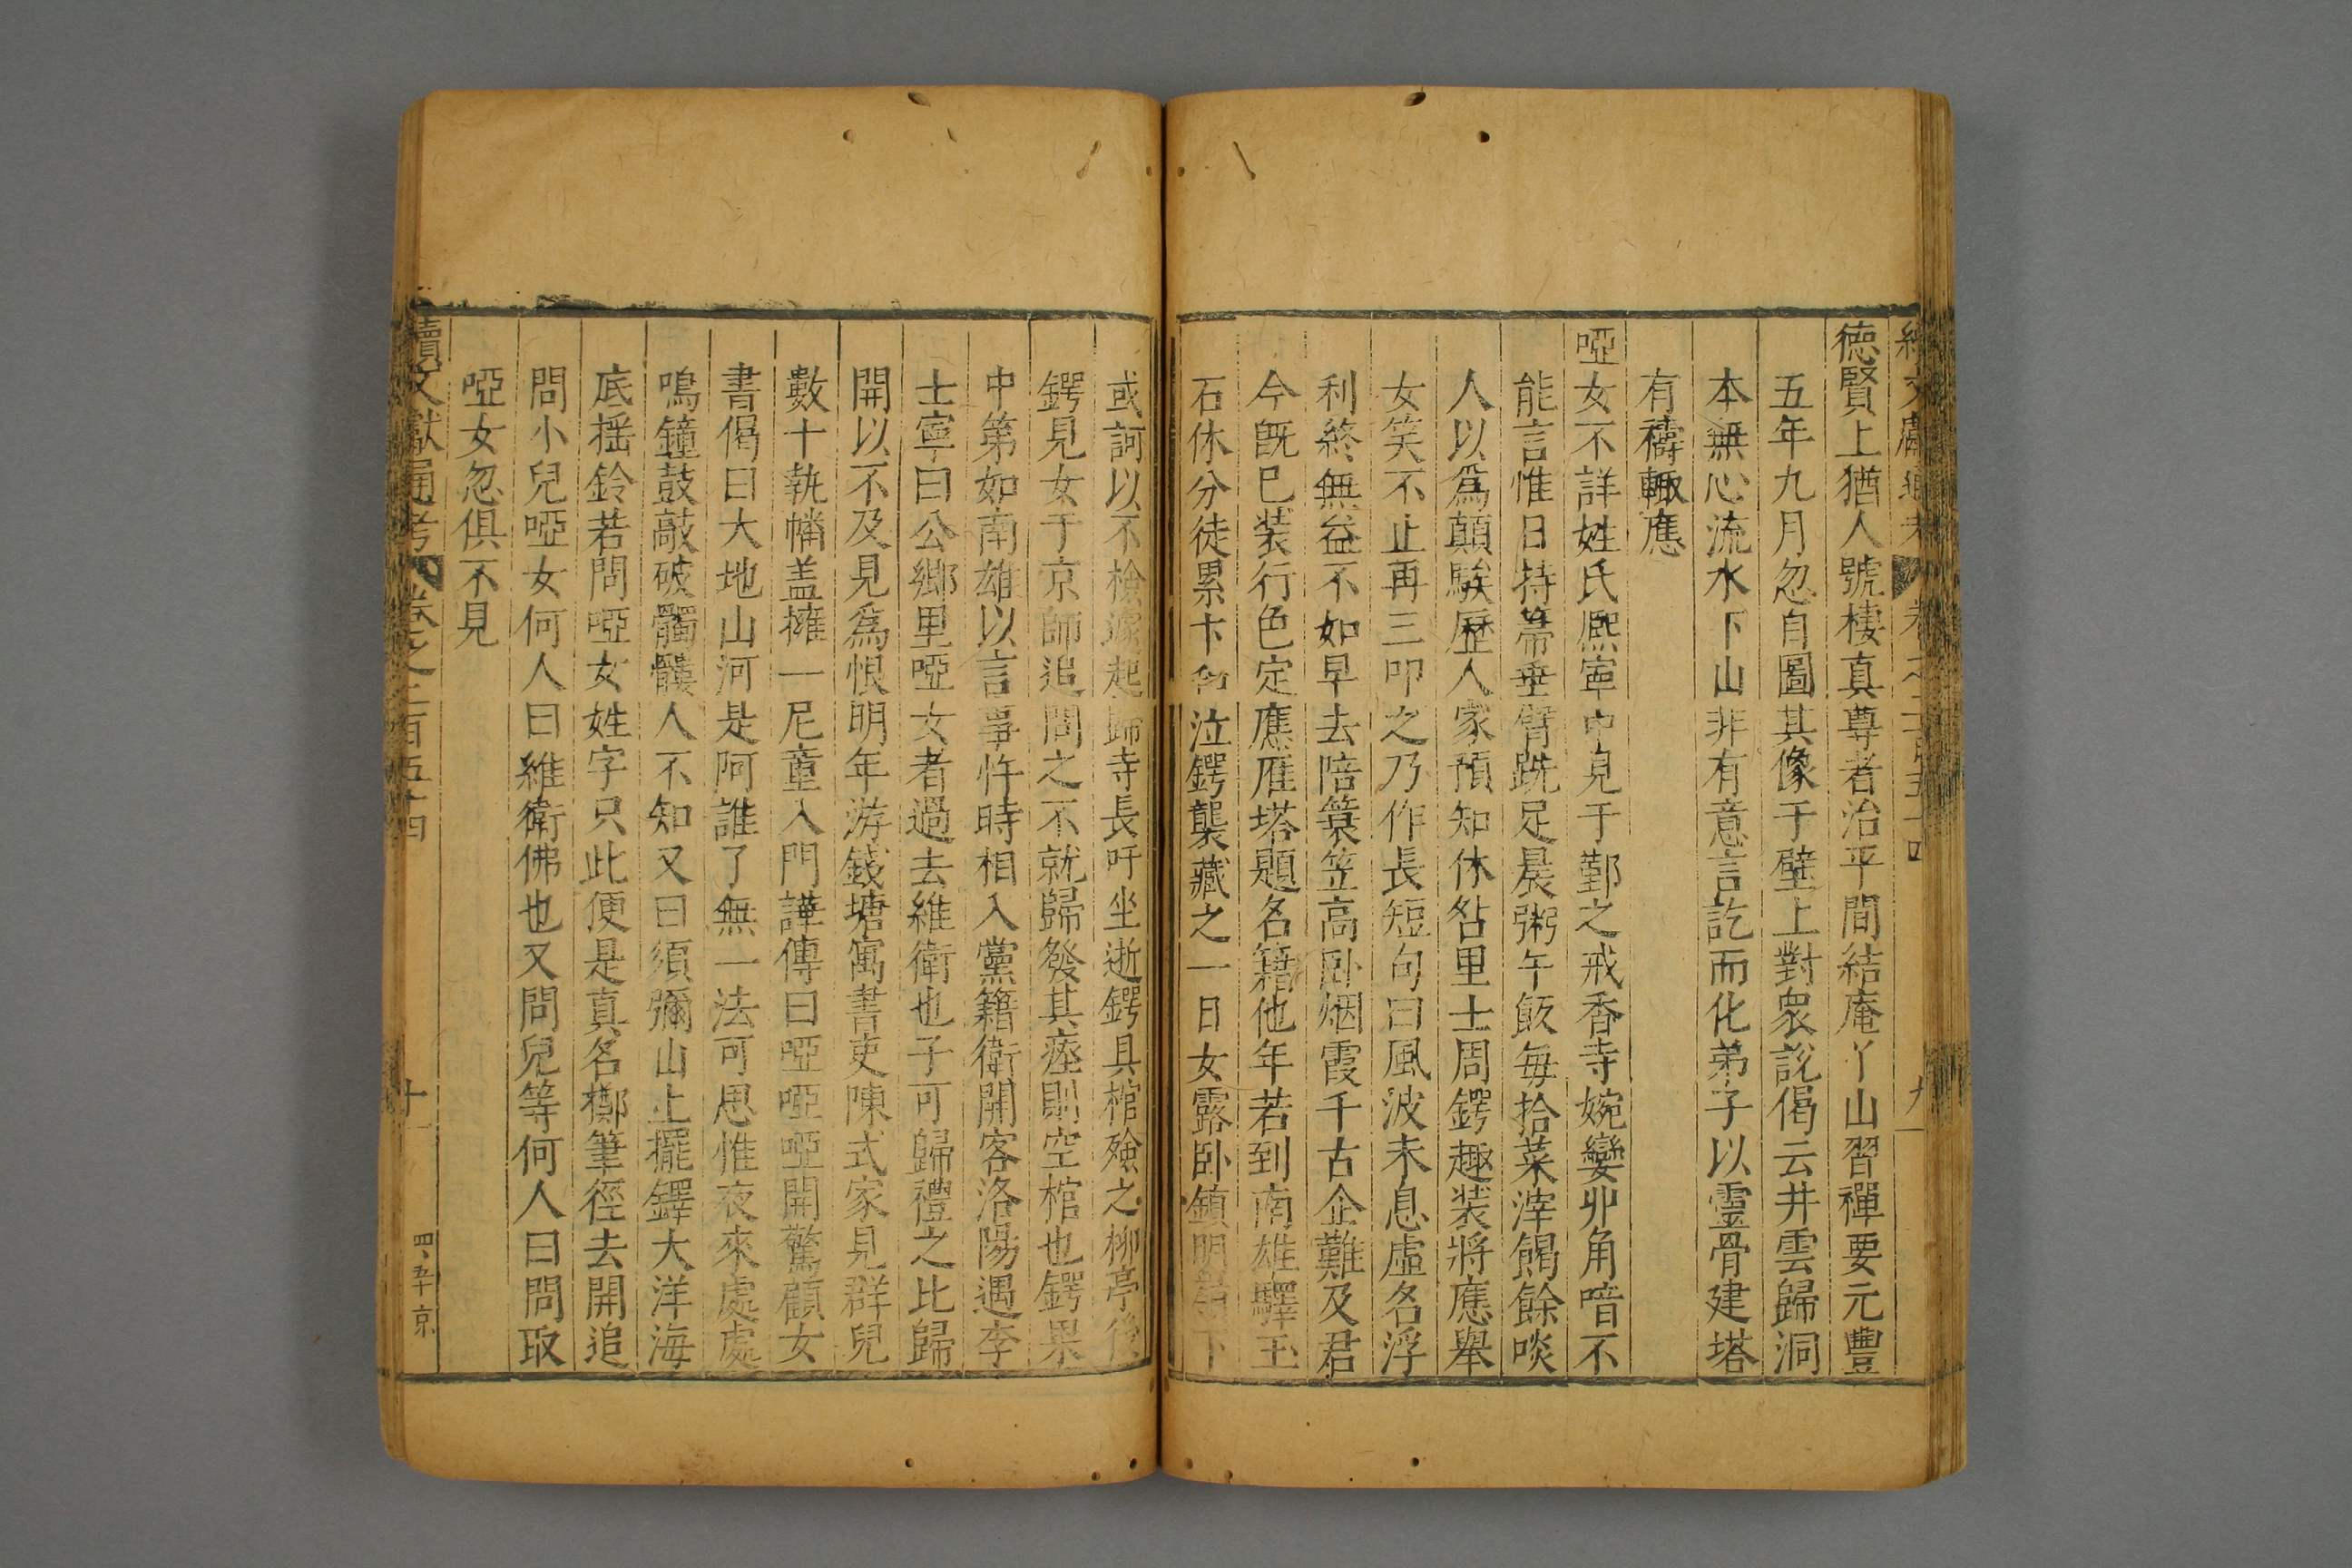 德賢上猶人號棲真尊者治平間結庵丫山習禪要元豐
五年九月忽自圖其像于壁上對衆說偈云井雲歸洞
本無心流水下山非有意言訖而化弟子以靈骨建塔
有禱輙應
啞女不詳姓氏熈寧中見于鄞之戒香寺婉孌丱角喑不
能言惟日持箒垂臂跣足晨粥午飯每拾菜滓餲餘啖
人以爲顛騃歷人家預知休咎里士周鍔趣装將應舉
女笑不止再三叩之乃作長短句曰風波未息虛名浮
利終無益不如早去陪簑笠高卧烟霞千古企難及君
今旣已装行色定應雁塔題名籍他年若到南雄驛玉
石休分徒累卞和泣鍔襲藏之一日女露卧鎮明嶺下
或訶以不檢遽起歸寺長吁坐逝鍔具棺殮之柳亭後
鍔見女于京師追問之不就歸發其瘞則空棺也鍔果
中第如南雄以言事忤時相入黨籍衛開客洛陽遇李
士寧曰公鄉里啞女者過去維衛也子可歸禮之比歸
開以不及見爲恨明年游錢塘寓書吏陳式家見群兒
數十執幡盖擁一尼童入門譁傳曰啞啞啞開驚顧女
書偈曰大地山河是阿誰了無一法可思惟夜來處處
鳴鐘鼓敲破髑髏人不知又曰須彌山上擺鐸大洋海
底摇鈴若問啞女姓字只此便是真名擲筆徑去開追
問小兒啞女何人曰維衛佛也又問兒等何人曰問取
啞女忽俱不見
續文獻通考 卷之二百五十四 十一 四、五十 京